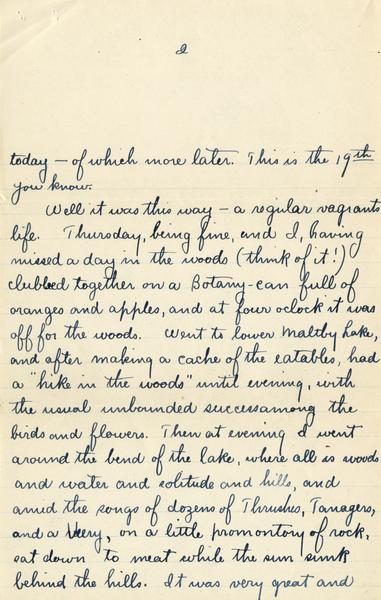 2
today – of which more later. This is the 19th
you know.
Well it was this way – a regular vagrants
life. Thursday, being fine, and I, having
missed a day in the woods (think of it!)
clubbed together on a Botany-can full of
oranges and apples, and at four oclock it was
off for the woods. Went to lower Maltby Lake,
and after making a cache of the eatables, had
a "hike in the woods" until evening, with
the usual unbounded success among the
birds and flowers. Then at evening I went
around the bend of the lake, where all is woods
and water and solitude and hills, and
amid the songs of dozens of Thrushes, Tanagers,
and a Veery, on a little promontory of rock,
sat down to meat while the sun sunk
behind the hills. It was very great and